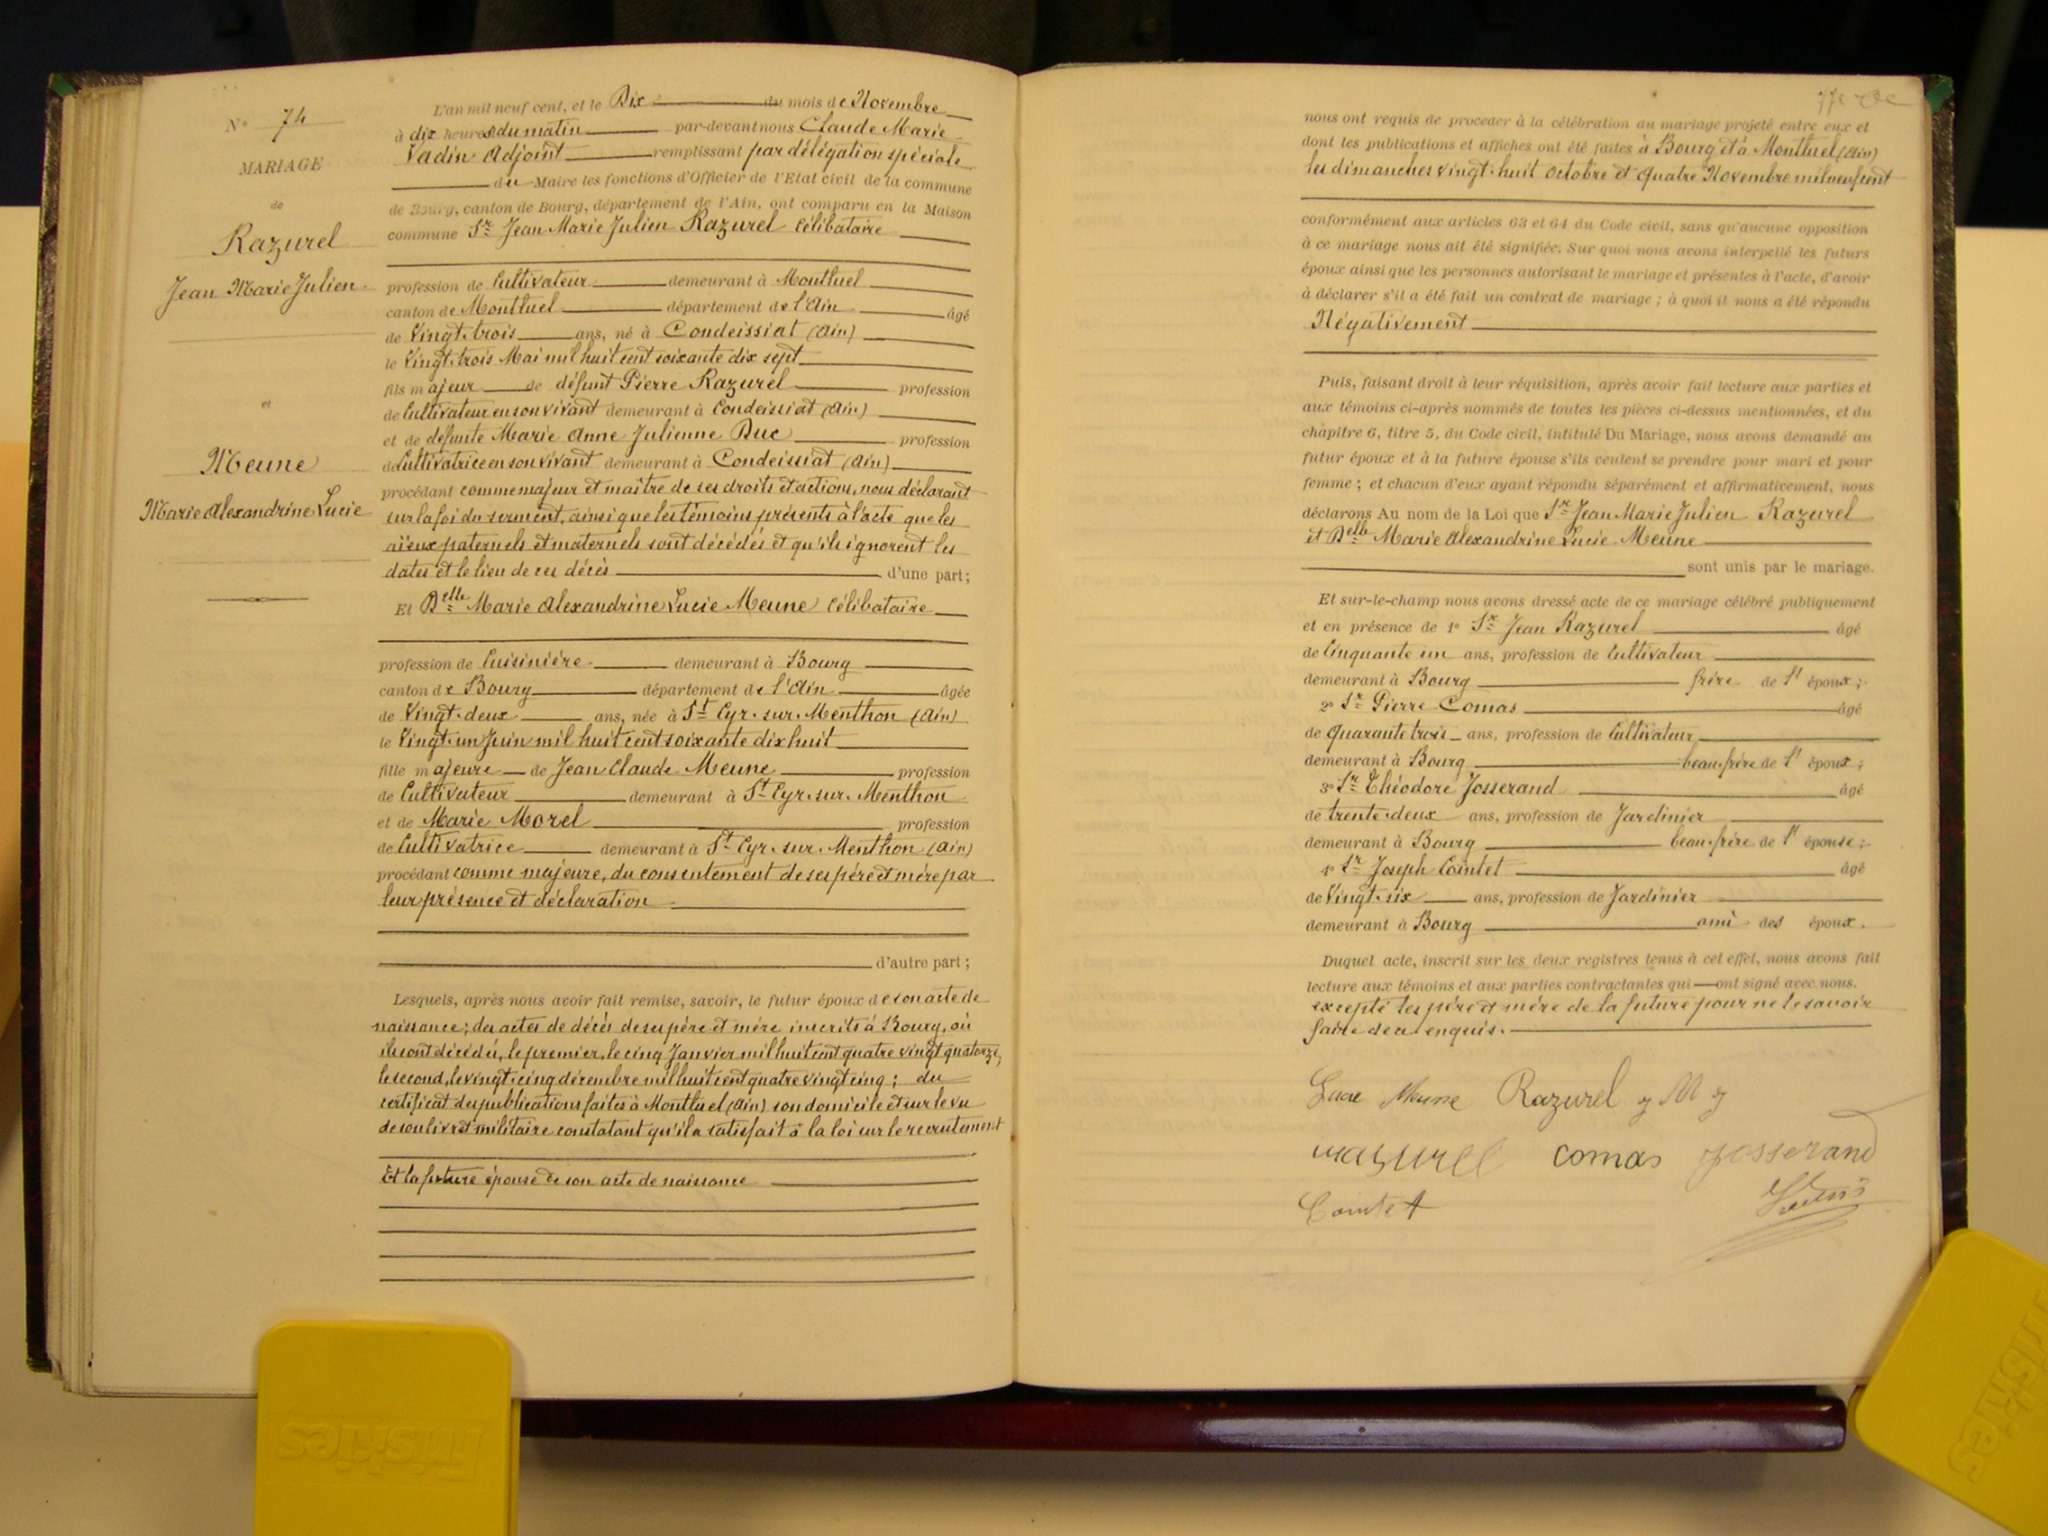 N° 74
MARIAGE
de
Razurel
Jean Marie Julien
et
Meune
Marie Alexandrine Lucie
L'an mil neuf cent, et le Dix du mois de Novembre
à dix heures du matin par-devant nous Claude Marie
Vadin Adjoint remplissant par délégation spéciale
du Maire les fonctions d'Officier de l'Etat civil de la commune
de Bourg, canton de Bourg, département de l'Ain, ont comparu en la Maison
commune Sr Jean Marie Julien Razurel célibataire
profession de Cultivateur demeurant à Montluel
canton de Montluel département de l'Ain âgé
de Vingt-trois ans, né à Condeissiat (Ain)
le Vingt-trois Mai mil huit cent soixante dix sept
fils majeur de défunt Pierre Razurel profession
de Cultivateur en son vivant demeurant à Condeissiat (Ain)
et de défunte Marie Anne Julienne Duc profession
de Cultivatrice en son vivant demeurant à Condeissiat (Ain)
procédant comme majeur et maître de ses droits et actions, nous déclarant
sur la foi du serment, ainsi que les témoins présents à l'acte que les
aïeux paternels et maternels sont décédés et qu'ils ignorent les
dates et le lieu de ces décès d'une part;
Et Delle Marie Alexandrine Lucie Meune célibataire
profession de Cuisinière demeurant à Bourg
canton de Bourg département de l'Ain âgée
de Vingt-deux ans, née à St Cyr-sur-Menthon (Ain)
le Vingt-un Juin mil huit cent soixante dix huit
fille majeure de Jean Claude Meune profession
de Cultivateur demeurant à St Cyr-sur-Menthon
et de Marie Morel profession
de Cultivatrice demeurant à St Cyr-sur-Menthon (Ain)
procédant comme majeure, du consentement de ses père et mère par
leur présence et déclaration
d'autre part;
Lesquels, après nous avoir fait remise, savoir, le futur époux de son acte de
naissance; des actes de décès de ses père et mère inscrits à Bourg, où
ils sont décédés, le premier, le cinq Janvier mil huit cent quatre vingt quatorze,
le second, le vingt-cinq décembre mil huit cent quatre vingt cinq; du
certificat des publications faites à Montluel (Ain) son domicile et sur le vu
de son livret militaire constatant qu'il a satisfait à la loi sur le recrutement
Et la future épouse de son acte de naissance
nous ont requis de procéder à la célébration du mariage projeté entre eux et
dont les publications et affiches ont été faites à Bourg et à Montluel (Ain)
les dimanches vingt-huit Octobre et quatre Novembre mil neuf cent
conformément aux articles 63 et 64 du Code civil, sans qu'aucune opposition
à ce mariage nous ait été signifiée. Sur quoi nous avons interpellé les futurs
époux ainsi que les personnes autorisant le mariage et présentes à l'acte, d'avoir
à déclarer s'il a été fait un contrat de mariage; à quoi il nous a été répondu
Négativement
Puis, faisant droit à leur réquisition, après avoir fait lecture aux parties et
aux témoins ci-après nommés de toutes les pièces ci-dessus mentionnées, et du
chapitre 6, titre 5, du Code civil, intitulé Du Mariage, nous avons demandé au
futur époux et à la future épouse s'ils veulent se prendre pour mari et pour
femme; et chacun d'eux ayant répondu séparément et affirmativement, nous
déclarons Au nom de la Loi que Sr Jean Marie Julien Razurel
et Delle Marie Alexandrine Lucie Meune
sont unis par le mariage.
Et sur-le-champ nous avons dressé acte de ce mariage célébré publiquement
et en présence de 1° Sr Jean Razurel âgé
de Cinquante un ans, profession de Cultivateur
demeurant à Bourg frère de l' époux;
2° Sr Pierre Comas âgé
de Quarante trois ans, profession de Cultivateur
demeurant à Bourg beau-frère de l' époux;
3° Sr Théodore Josserand âgé
de trente-deux ans, profession de Jardinier
demeurant à Bourg beau-frère de l' épouse;
4° Sr Joseph Cointet âgé
de Vingt-six ans, profession de Jardinier
demeurant à Bourg ami des époux.
Duquel acte, inscrit sur les deux registres tenus à cet effet, nous avons fait
lecture aux témoins et aux parties contractantes qui ont signé avec nous.
excepté les père et mère de la future pour ne le savoir
faire de ce enquis.
Lucie Meune Razurel J M J
razurel comas josserand
Cointet Vadin
Triskies
Triskies